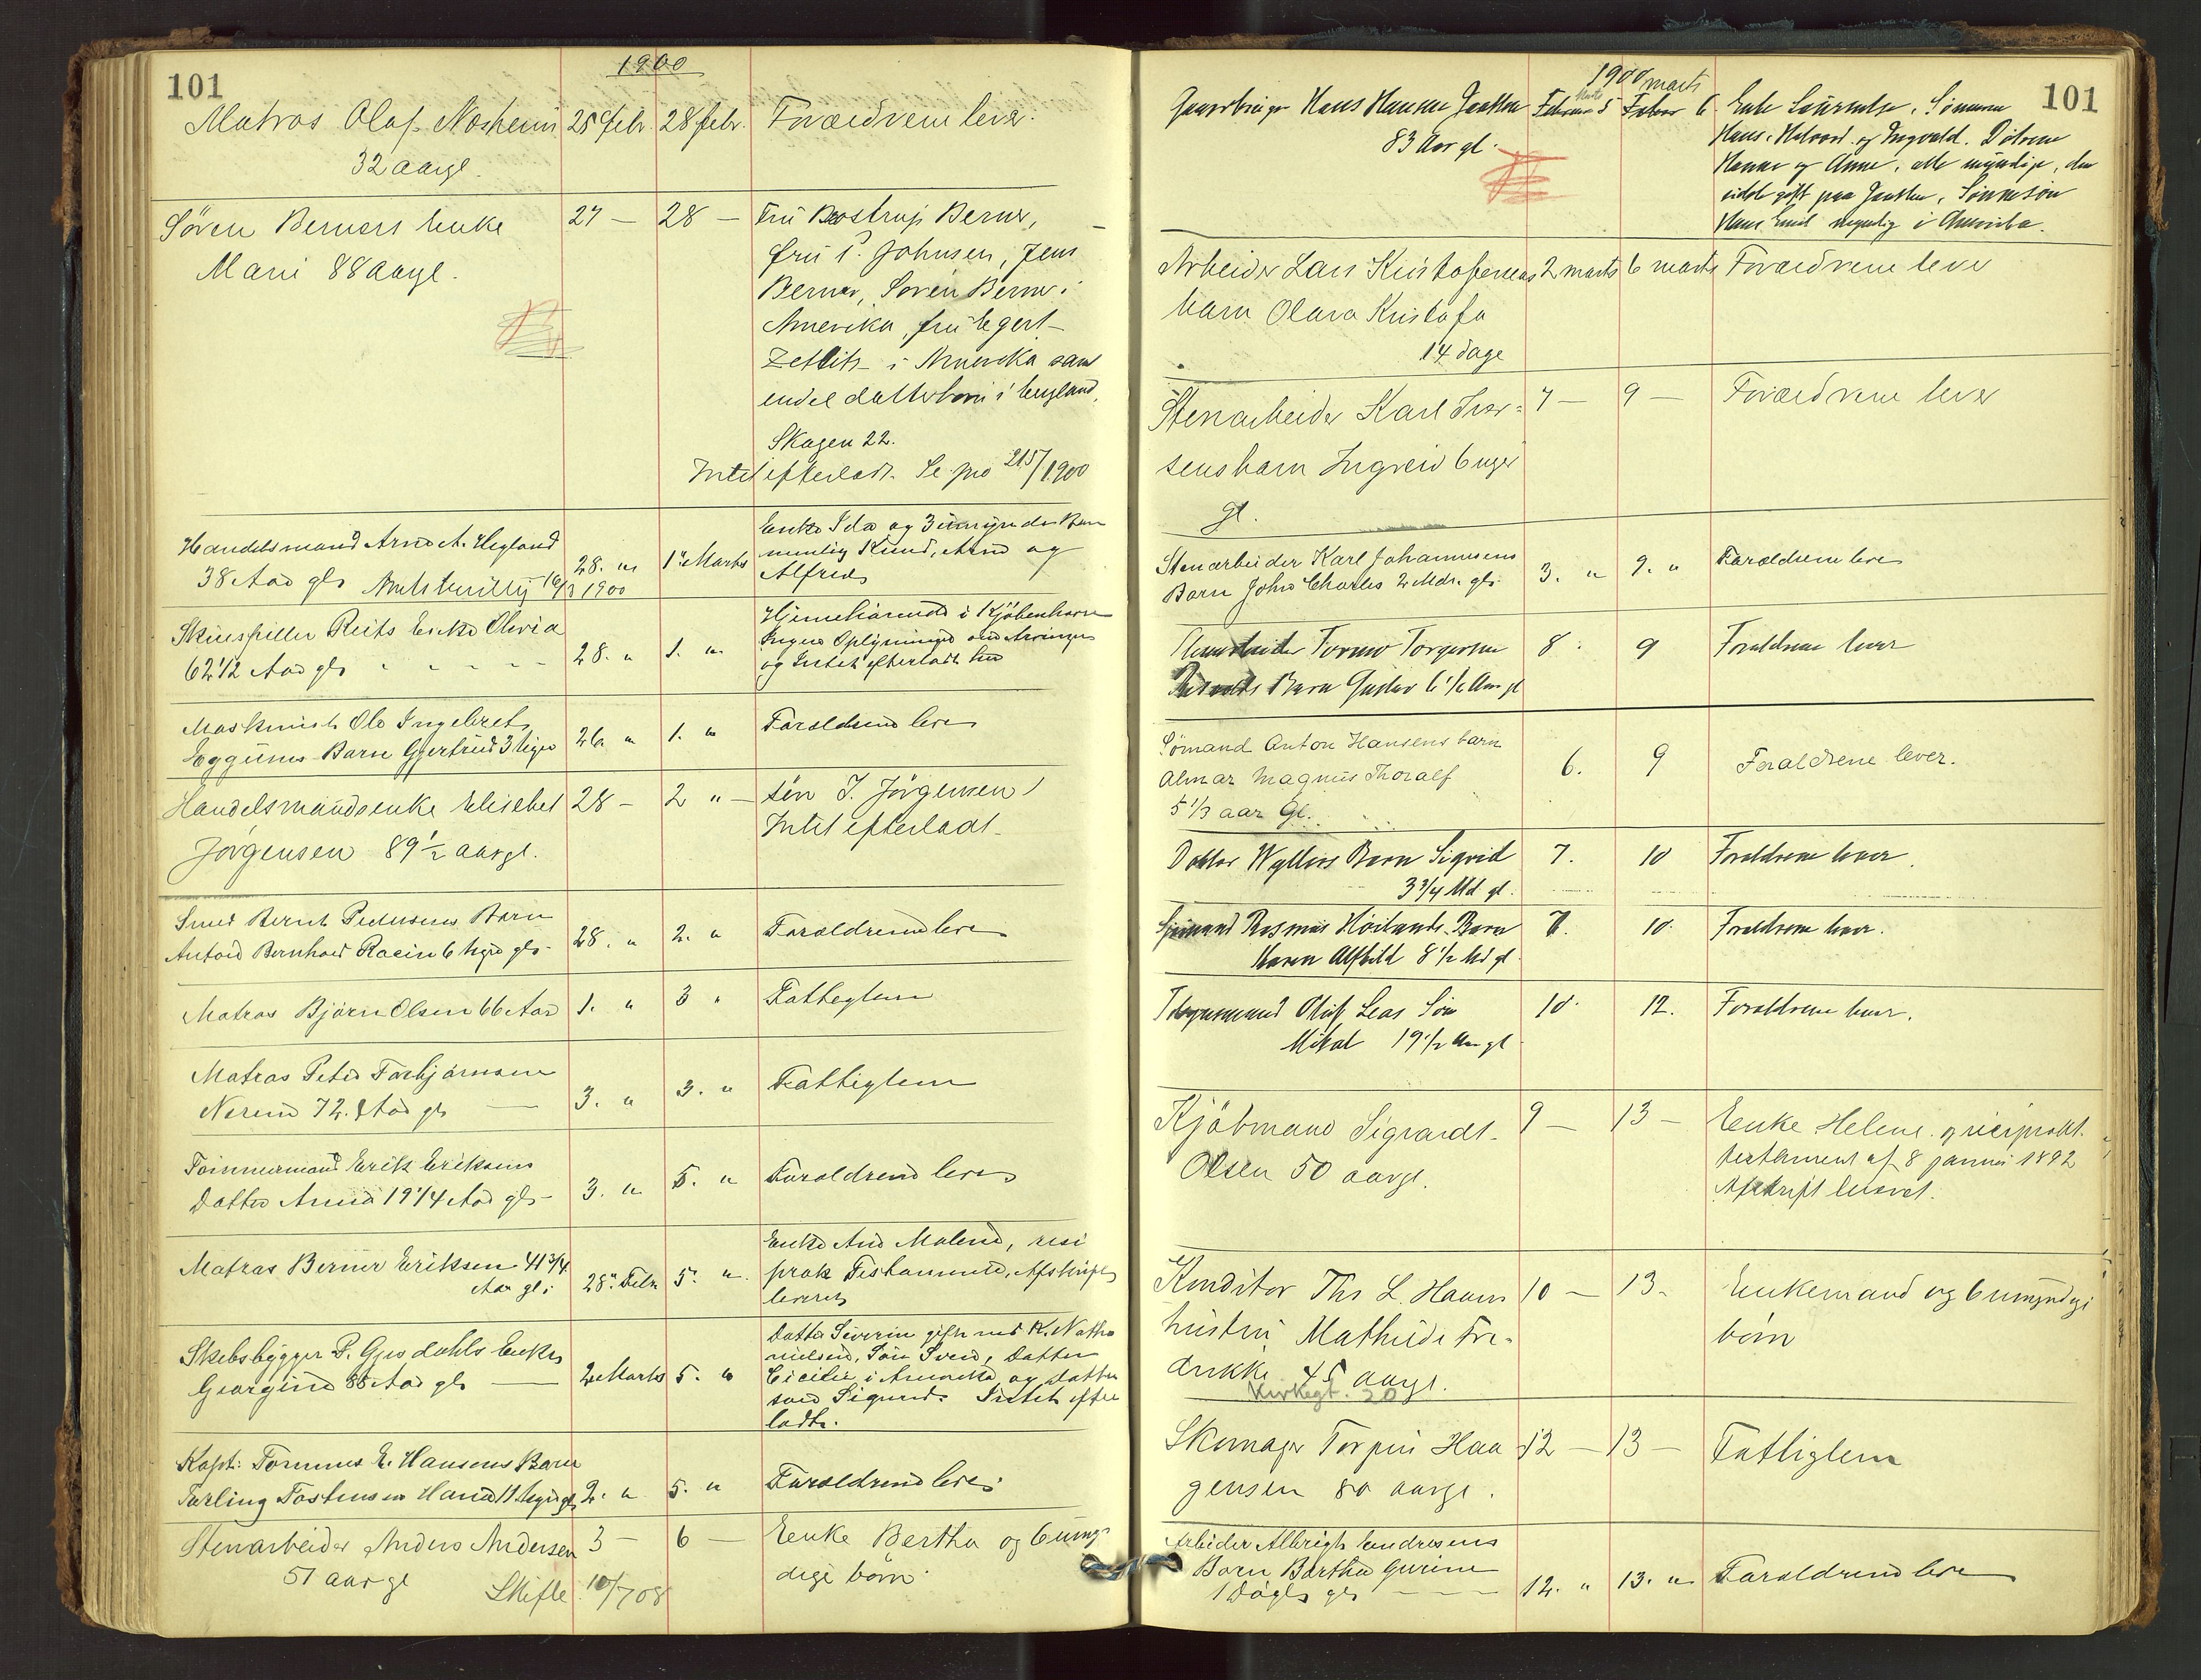 101
1900
Matros Olaf Nosheim 25 febr. 28 febr. Forældrene lever.
32 aargl.
Søren Berners enke 27 — 28 — Fru Bostrup Berner,
Mari 88 aargl. fru P. Johnsen, Jens
Berner, Søren Berner i
Amerika, fru Egert
Zetlitz i Amerika samt
endel datterbørn i England.
Skagen 22.
Intet efterladt. Se pro 215/1900
Handelsmand Arne A. Hegland 28. " 1ste Marts Enke Ida og 3 umyndie Børn
38 Aar gl. Amtsbevillg 16/3 1900 nemlig Knud, Arne og
Alfred
Skuespiller Reits Enke Olivia 28. " 1. " Hjemehørende i Kjøbenhavn
62 1/2 Aar gl. Ingen Oplysninger om Arvinger
og Intet efterladt her
Maskinist Ole Ingebret 26 " 1. " Forældrene lever
Eggums Barn Gjertrud 3 Uger
Handelsmandsenke Elisebet 28 — 2 " — søn J. Jørgensen /
Jørgensen 89 1/2 aargl. Intet efterladt
Smed Bernt Pedersens Barn 28. " 2. " Forældrene lever
Antoni Bernhard 6 Uger gl.
Matros Bjørn Olsen 66 Aar 1. " 3 " Fattiglem
Matros Peder Torbjørnsen 3. " 3. " Fattiglem
Nerem 72. Aar gl.
Tømmermand Erik Eriksens 3. " 5. " Forældrene lever
Datter Anna 19 1/4 Aar gl.
Matros Berner Eriksen 41 3/4 28. Febr 5. " Enke Ane Malene, resi
Aar gl. prok Testamente, Afskrift
leveret
Skibsbygger P. Gjesdahls Enke 2 Marts 5. " Datter Severin gift med K. Natha
Georgine 88 Aar gl. nielsen, Søn Svend, Datter
Cicilie i Amerika og datter
søn Sigurd. Intet efter
ladt.
Kapt: Tommes E. Hansens Barn 2. " 5. " Forældrene lever
Tarling Tostensen Hana 11 Uger gl.
Stenarbeider Anders Andersen 3 — 6 — Enke Bertha og 6 umyn
51 aar gl dige børn
Skifte 10/7 08
101
1900 marts
Hans Hansen Jaatten 5 6 Enke Laurentse, Sønnene
83 Aar gl. Hans, Halvard og Ingvald. Døtrene
Hanne og Anne, alle myndige, den
sidste gift paa Jaatten, Sønnesøn
Hans Emil myndig i Amerika.
Arbeider Lars Kristofersens 2 marts 6 marts Forældrene lever
barn Olava Kristofa
14 dage
Stenarbeider Karl Ivar- 7 — 9 — Forældrene lever
sens barn Ingreid 6 uger
gl.
Stenarbeider Karl Johannesens 3. " 9. " Forældrene lever
Barn John Charles 2 Mdr. gl.
Tormo Torgersen 8. 9 Forældrene lever
Barn Gustav 6 1/2 Aar gl
Sømand Anton Hansens barn 6. 9 Forældrene lever.
Almar Magnus Thoralf
5 1/3 aar Gl.
Doktor Wyllers Barn Sigrid 7. 10 Forældrene lever.
3 3/4 Md gl.
Sjømand Rasmus Høilands Barn 7. 10. Forældrene lever.
Karen Alfhild 8 1/2 Md gl
Olaf Leas Søn 10. 12. Forældrene lever.
Mikal 19 1/2 Aar gl
Kjøbmand Sigvardt 9 — 13 — Enke Helene, gjensiprokt
Olsen 50 aargl. testament af 8 januar 1892
Afskrift leveret.
Konditor Ths L. Haavrs 10 — 13 — Enkemand og 6 umyndige
hustru Mathilde Fre- børn
drikke 45 aargl.
Kirkegt. 20
Skomager Torpin Haa 12 — 13 — Fattiglem
gensen 80 aargl.
Arbeider Albrigt Endresens 12. " 13. " Forældrene lever
Barn Bertha Gurine
1 Døgn gl.